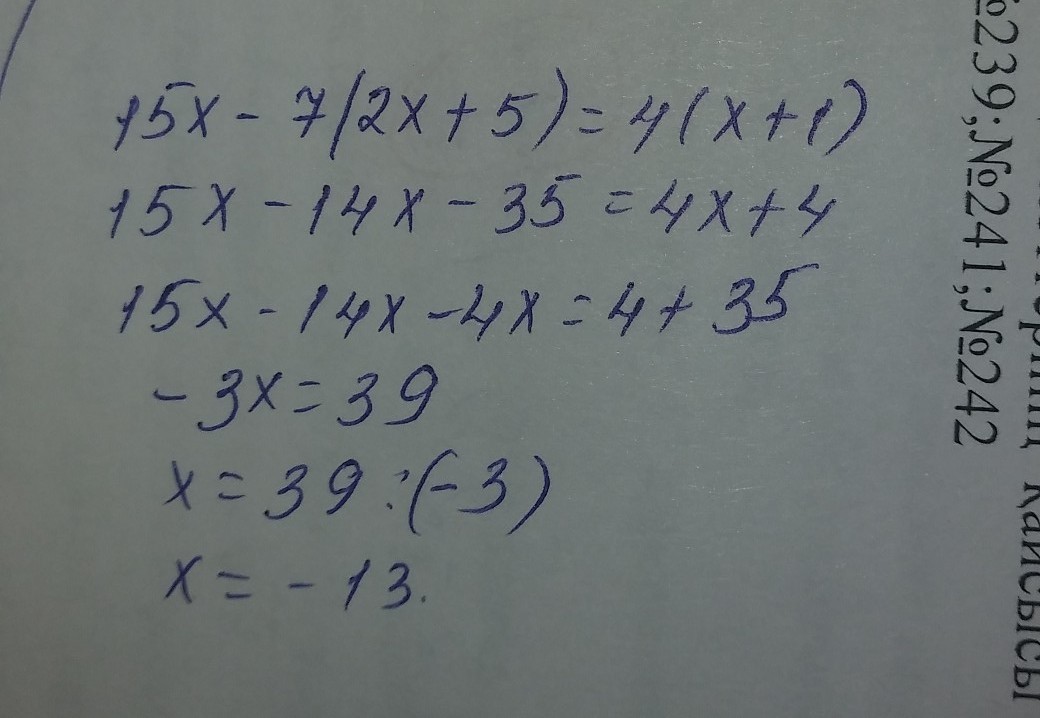 15x - 7(2x + 5) = 4(x + 1)
15x - 14x - 35 = 4x + 4
15x - 14x - 4x = 4 + 35
-3x = 39
x = 39 : (-3)
x = -13.
№239; №241; №242
қайсысы